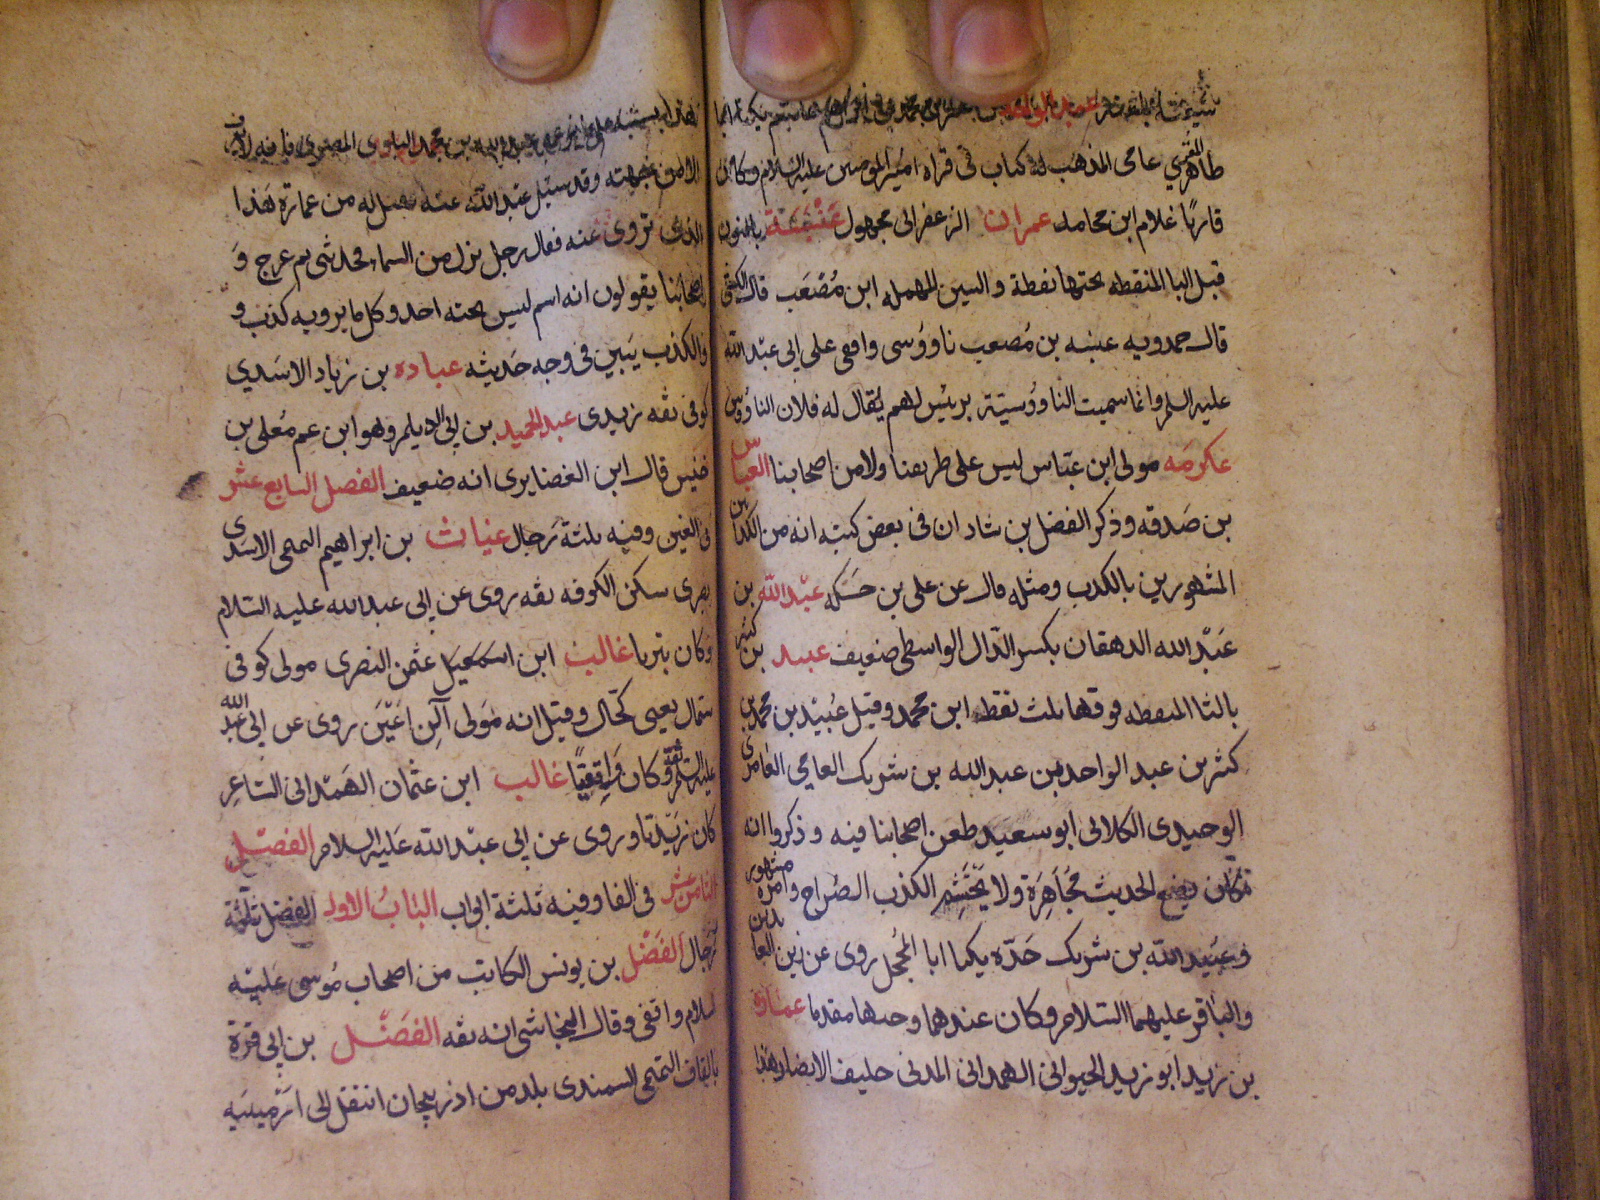 طاهر المقري عامي المذهب له كتاب في قراه امير المومنين عليه السلام وكان
قاريا غلام ابن محامد عمران الزعفراني مجهول عنبسة بالنون
قبل البا المنقطه تحتها نقطة والسين المهمله ابن مُصْعَب قال الكشي
قال حمدويه عنبسه بن مُصعب ناووُسى واقفي على ابي عبد الله
عليه السلم وانما سميت الناووُسيّة برئيس لهم يُقال له فلان الناووُس
عكرمه مولى ابن عبّاس ليس على طريقنا ولا من اصحابنا العباس
بن صَدقه وذكر الفضل بن شاذان في بعض كتبه انه من الكذابين
المشهورين بالكذب ومثله قال عن علي بن حَسَكه عبْد الله بن
عَبْد الله الدهقان بكسر الدّال الواسطي ضعيف عبيد بن كثير
بالثا المنقطه فوقها ثلث نقط ابن محمد وقيل عُبيْد بن محمد بن
كثير بن عبد الواحد بن عبد الله بن شريك العامي العامري
الوحيدى الكلابي ابو سعيد طعن اصحابنا فيه وذكروا انه
كان يضع الحديث مُجَاهَرَة ولا يَحْتَشِم الكذب الصُراح وامره مشهور
وعبَيد الله بن شريك جَدّه يكنا ابا المُحجل روى عن زين العابدين
والباقر عليهما السّلام وكان عندهما وجيها مقدما عمَارة
بن زيد ابو زيد الخيواني الهمداني المدني حليف الانصار وهذا
الا من جهته وقد سئل عبد الله عنه فقيل له من عمارة هَذا
الذى تروى عنه فقال رجل نزل من السماء فحدثني ثم عرج وَ
اصحابنا يقولون انه اسم ليس تحته احد وكل ما يرويه كذب و
والكذب يَبين في وجه حَديثه عباده بن زياد الاسَدي
كوفي ثقه زيدى عبد الحميد بن ابي الديلم وهو ابن عم مُعلى بن
خنيس قال ابن الغضايرى انه ضعيف الفصل السابع عشر
في الغين وفيه ثلثة رَجال غياث بن ابراهيم التميمي الاسَدى
بصرى سكن الكوفه ثقه روى عن ابي عبد الله عليه السلام
وكان بتريا غالب ابن اسمَعيَل عثمن النصرى مولى كوفي
سّمال يعني كحّال وقيل انه مَولى آلِ اعَيْن روى عن ابي عبد الله
عليه السّلم ثقة وكان وَاقِفيًا غالب ابن عثمان الهَمْداني الشاعر
كان زيَديّا وروى عن ابي عبْد الله عَليْه السلام الفصَل
الثامن عشر في الفا وفيه ثلثة ابواب البَابُ الاول الفضل ثلثة
رَجال الفَضْل بن يونس الكاتب من اصحاب مُوسى عَليْه
السلام واقفى وقال النجاشي انه ثقه الفَضَل بن ابي قرة
بالقاف التميمي السمندى بلد من اذربيجان انتقل الى ارْميْنيَه